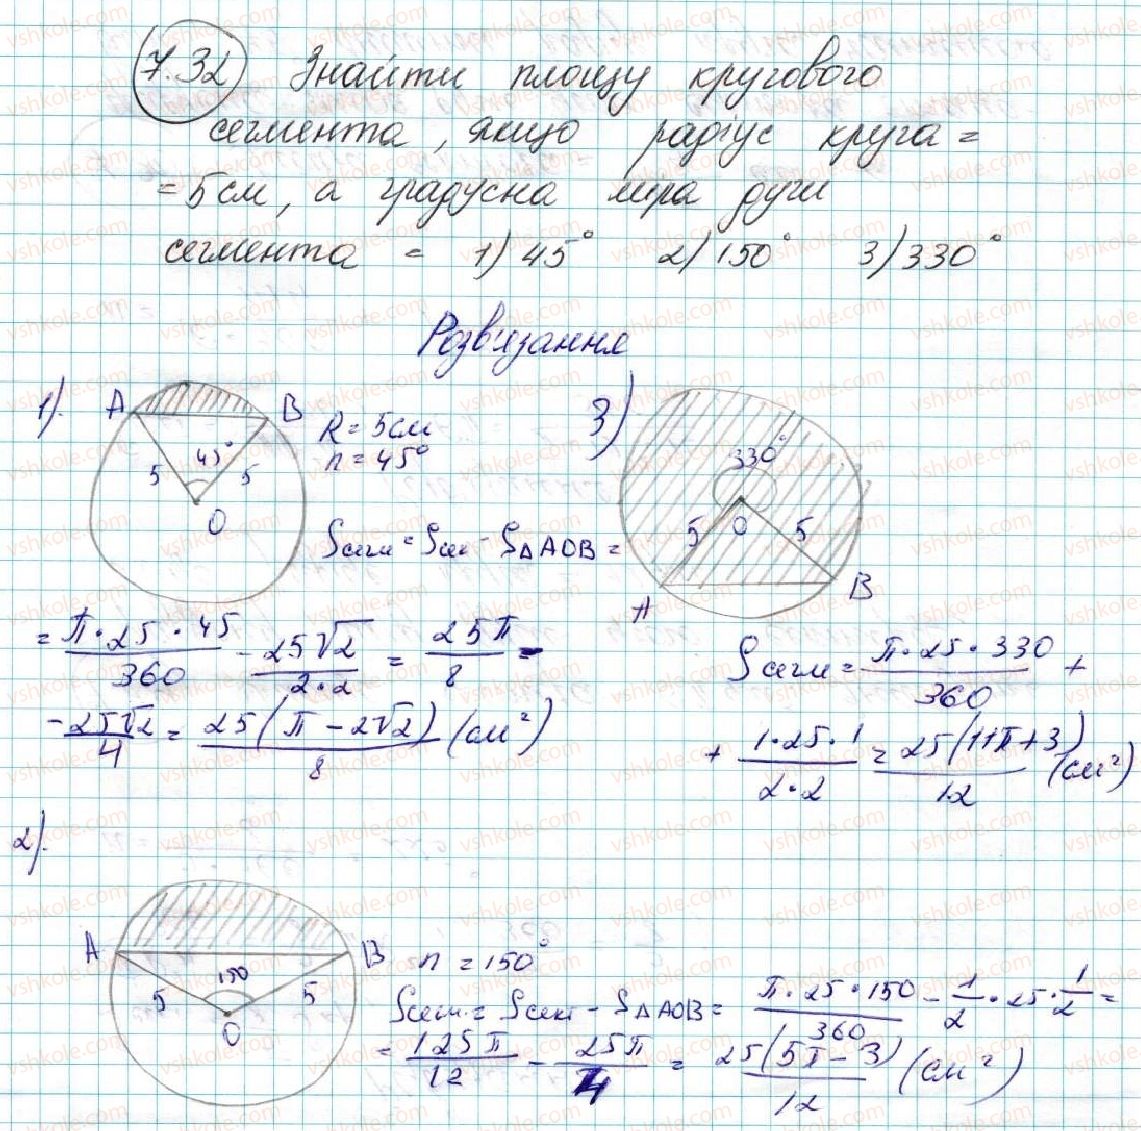 7.32 Знайти площу кругового
сегмента, якщо радіус круга =
= 5 см, а градусна міра дуги
сегмента = 1) 45° 2) 150° 3) 330°
Розв'язання
1).
A B
45°
5 5
O
R = 5 см
n = 45°
Sсегм = Sсек - S△AOB =
= π·25·45/360 - 25√2/2·2 = 25π/8 -
- 25√2/4 = 25(π - 2√2)/8 (см²)
3)
330°
5 O 5
A B
Sсегм = π·25·330/360 +
+ 1·25·1/2·2 = 25(11π+3)/12 (см²)
2).
A B
150
5 5
O
n = 150°
Sсегм = Sсект - S△AOB = π·25·150/360 - 1/2·25·1/2 =
= 125π/12 - 25π/4 = 25(5π-3)/12 (см²)
vshkole.com